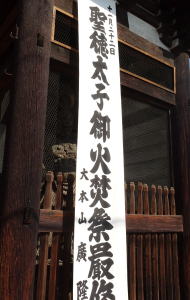 十一月二十二日
聖徳太子御火焚祭厳修
大本山廣隆